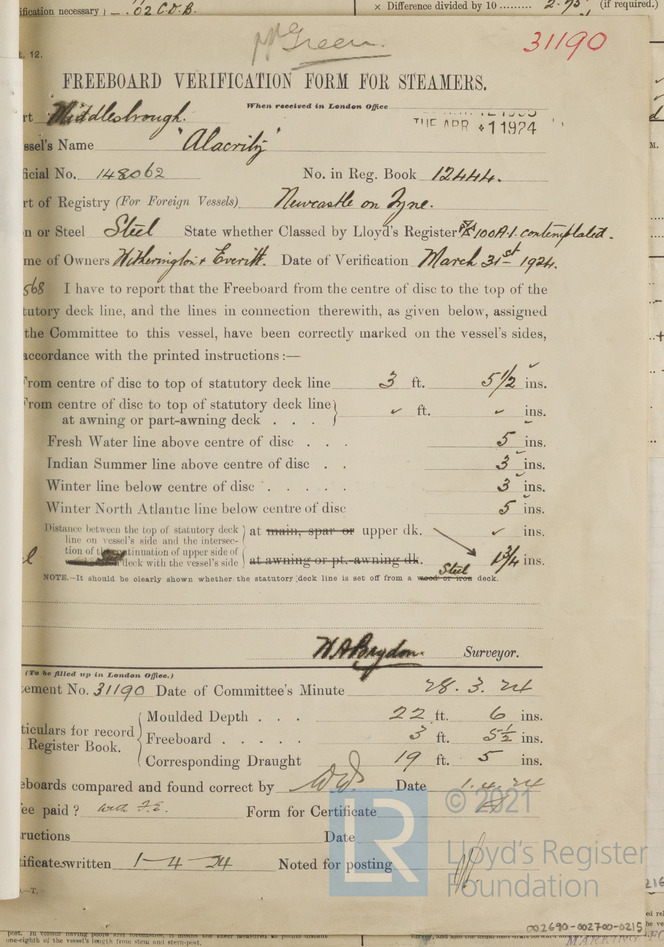 ification necessary } — .02 C.D.B. × Difference divided by 10 ......... 2.75 (if required.)
ppGreen.
31190
12.
FREEBOARD VERIFICATION FORM FOR STEAMERS.
When received in London Office
rt Middlesbrough. TUE APR +1 1924
ssel's Name "Alacrity"
icial No. 148062 No. in Reg. Book 12444.
rt of Registry (For Foreign Vessels) Newcastle on Tyne.
n or Steel Steel State whether Classed by Lloyd's Register 100A.1. contemplated.
me of Owners Witherington & Everitt. Date of Verification March 31st 1924.
568 I have to report that the Freeboard from the centre of disc to the top of the
tutory deck line, and the lines in connection therewith, as given below, assigned
the Committee to this vessel, have been correctly marked on the vessel's sides,
accordance with the printed instructions:—
From centre of disc to top of statutory deck line 3 ft. 5 1/2 ins.
From centre of disc to top of statutory deck line } ✓ ft. ✓ ins.
at awning or part-awning deck . . .
Fresh Water line above centre of disc . . . 5 ins.
Indian Summer line above centre of disc . . 3 ins.
Winter line below centre of disc . . . . . 3 ins.
Winter North Atlantic line below centre of disc 5 ins.
Distance between the top of statutory deck line on vessel's side and the intersec- } at main, spar or upper dk. ✓ ins.
tion of the continuation of upper side of Steel deck with the vessel's side } at awning or pt.-awning dk. 1 3/4 ins.
Steel
NOTE.—It should be clearly shown whether the statutory deck line is set off from a wood or iron deck.
H A Brydon Surveyor.
(To be filled up in London Office.)
tement No. 31190 Date of Committee's Minute 28.3.24
ticulars for record Register Book. { Moulded Depth . . . 22 ft. 6 ins.
Freeboard . . . . . 3 ft. 5 1/2 ins.
Corresponding Draught 19 ft. 5 ins.
eboards compared and found correct by Date 1.4.24
ee paid? with F.E. Form for Certificate
ructions Date
tificates written 1-4-24 Noted for posting
© 2021
LR
Lloyd's Register
Foundation
.—T.
002690-002700-0215
one-eighth of the vessel's length from stem and stern-post.